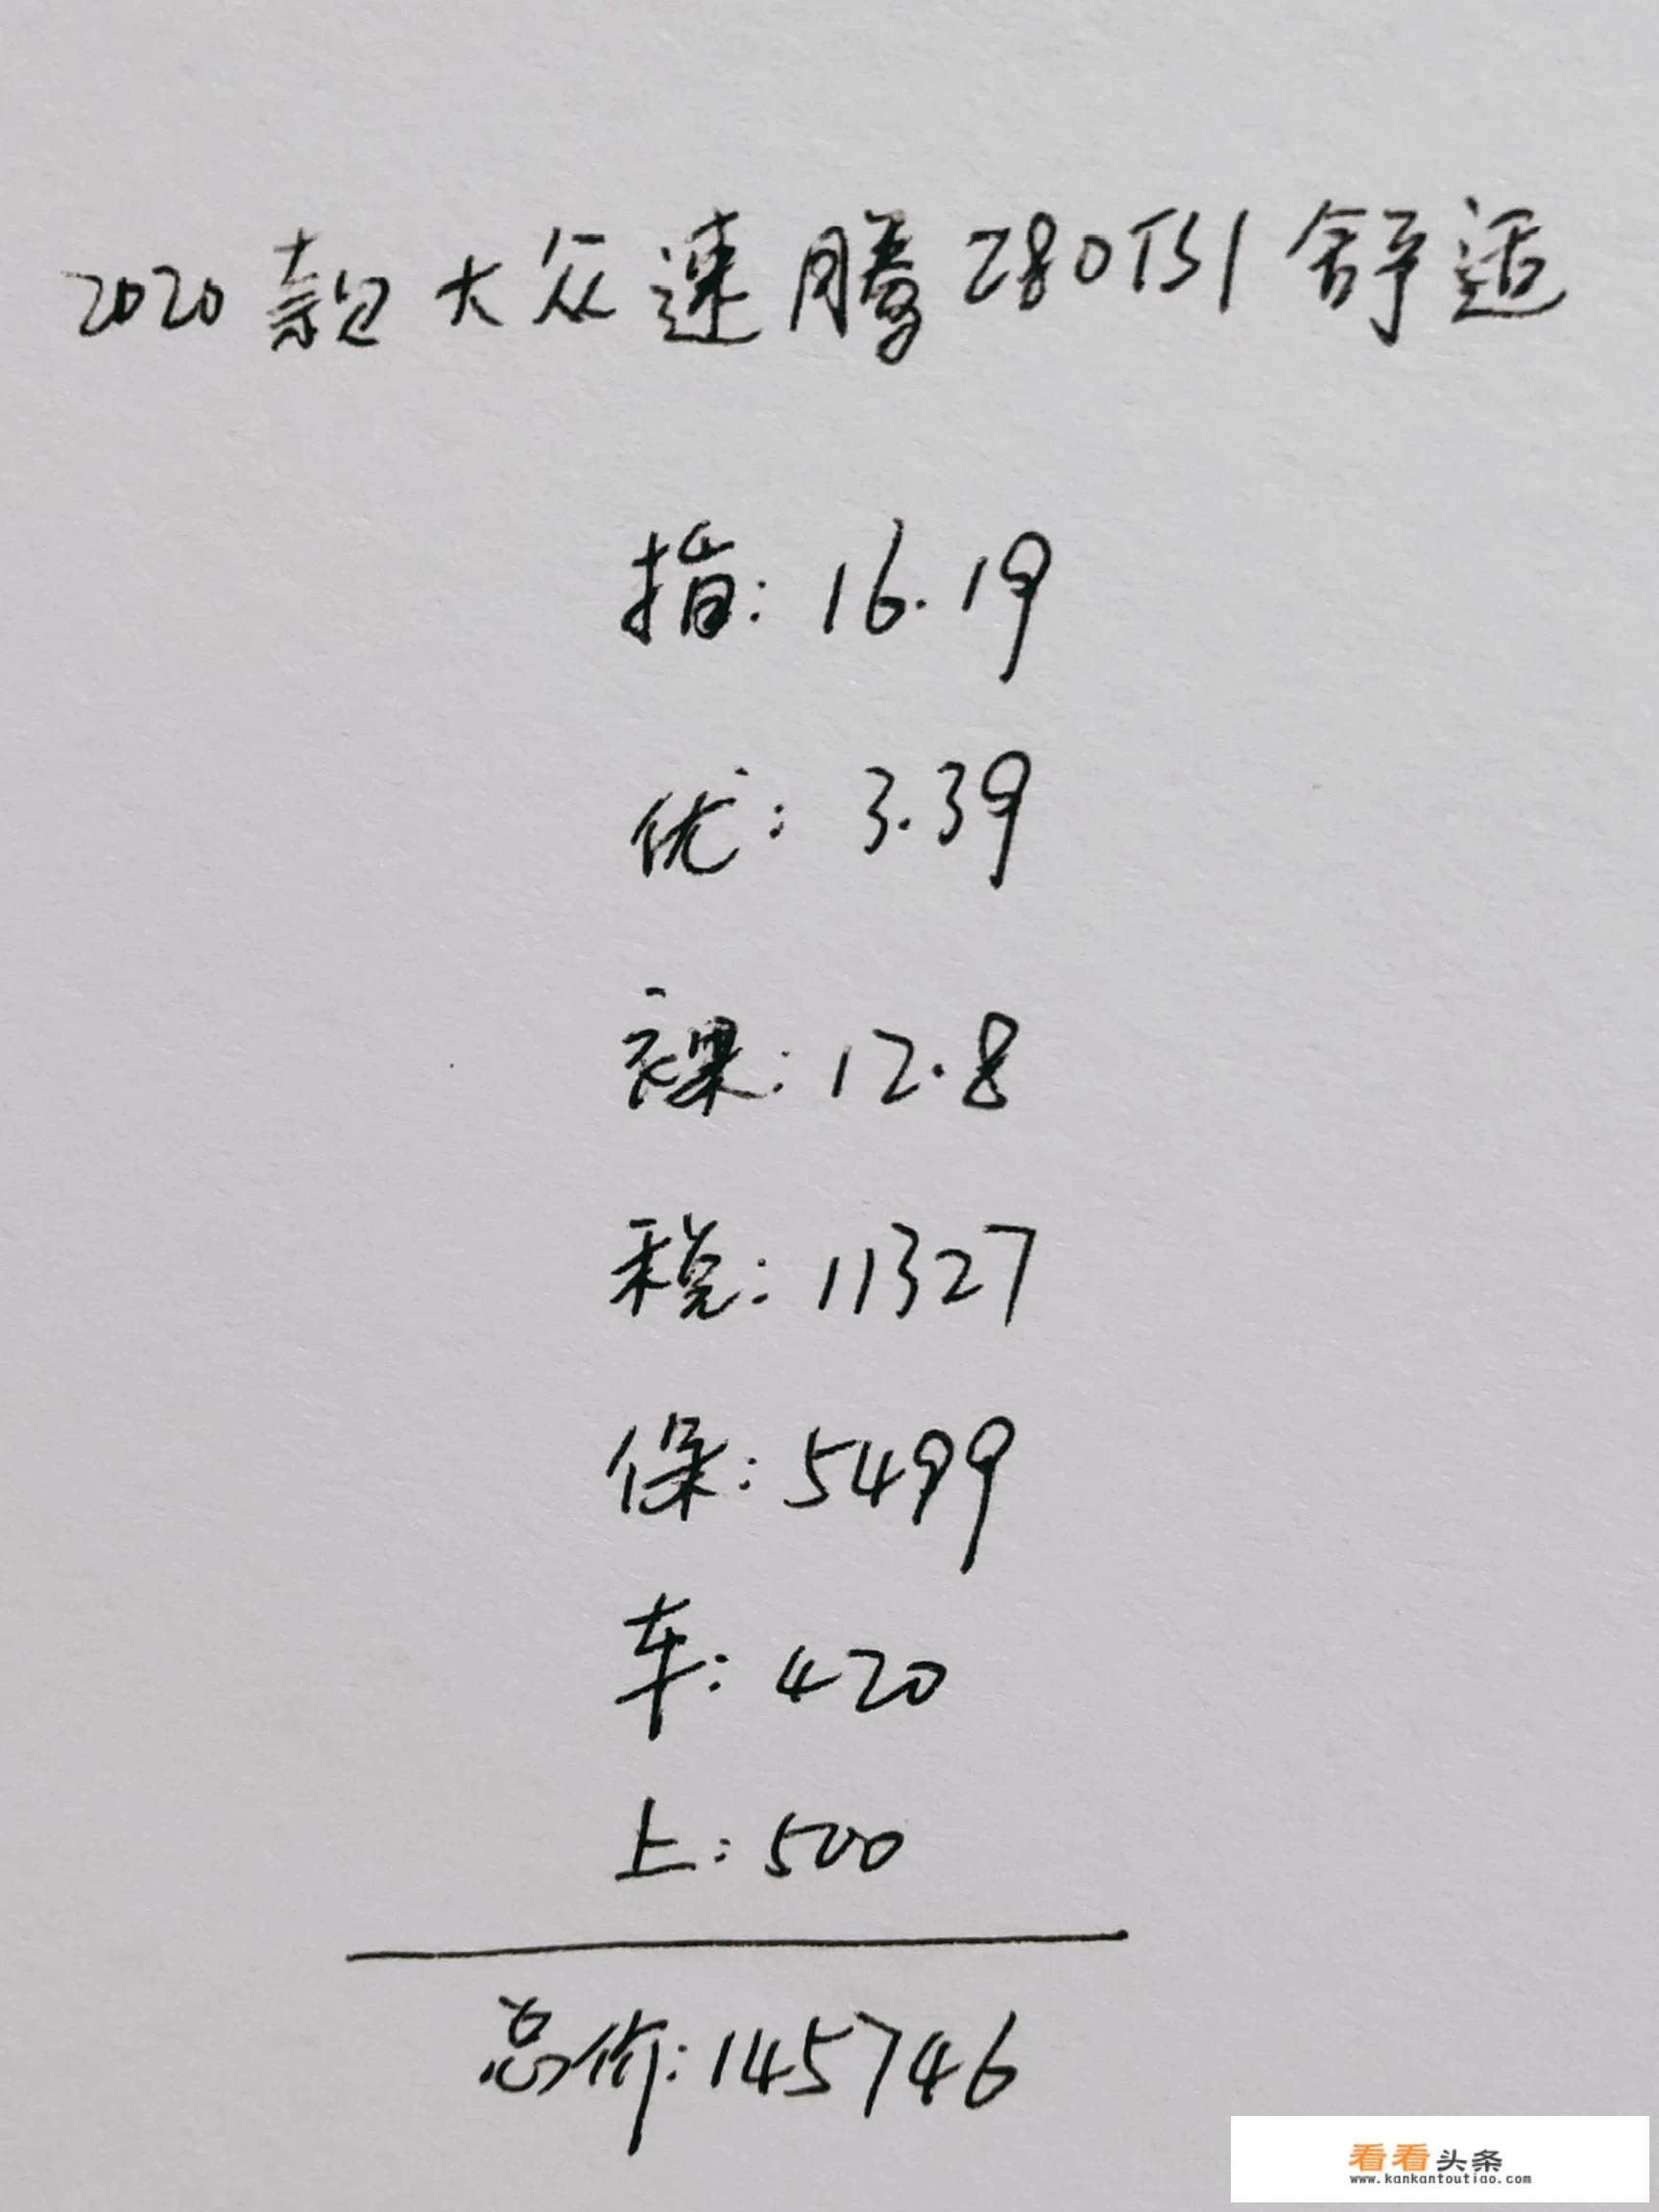 2020款大众速腾280TSI舒适
指:16.19
优:3.39
裸:12.8
税:11327
保:5499
车:420
上:500
总价:145746
看看头条
www.kankantoutiao.com